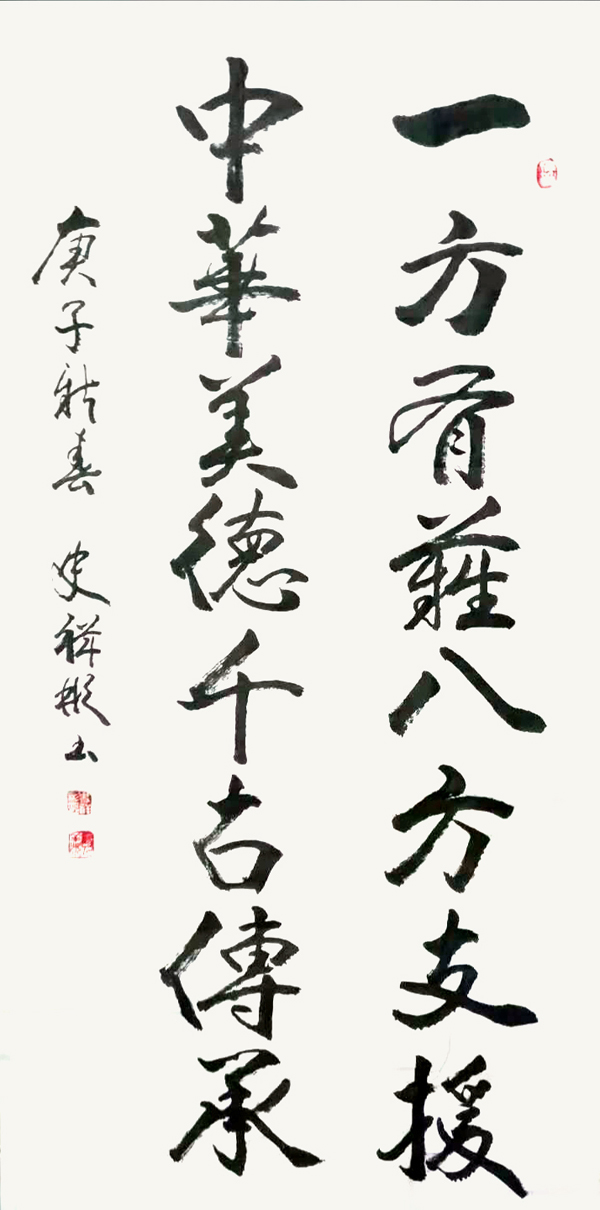 一方有難八方支援
中華美德千古傳承
庚子新春 史祥彬书